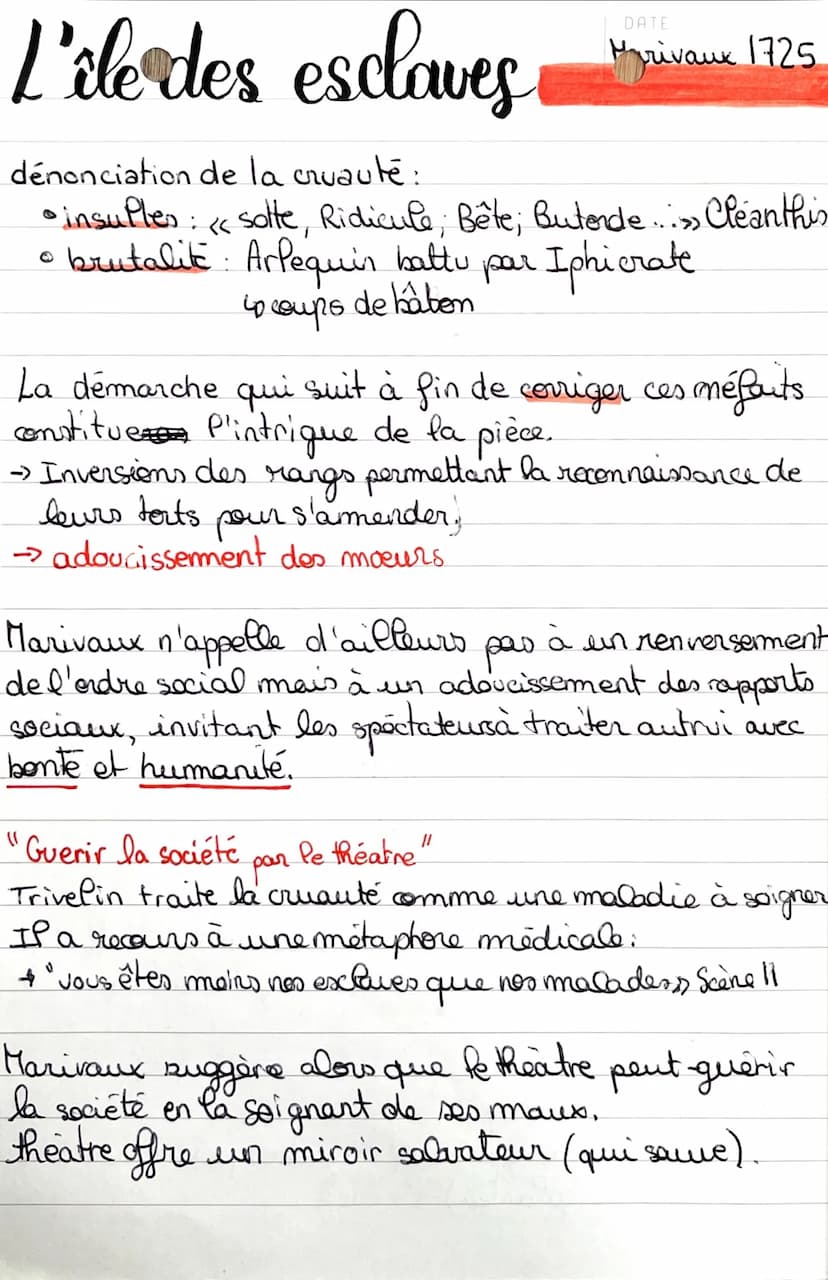 DATE
L'île des esclaves
Marivaux 1725
dénonciation de la cruauté :
• insultes : « sotte, Ridicule ; Bête ; Butorde ... » Cléanthis
• brutalité : Arlequin battu par Iphicrate
↳ coups de bâton
La démarche qui suit à fin de corriger ces méfaits
constitue l'intrigue de la pièce.
→ Inversions des rangs permettant la reconnaissance de
leurs torts pour s'amender.
→ adoucissement des mœurs
Marivaux n'appelle d'ailleurs pas à un renversement
de l'ordre social mais à un adoucissement des rapports
sociaux, invitant les spéctateurs à traiter autrui avec
bonté et humanité.
"Guerir la société par le théatre"
Trivelin traite la cruauté comme une maladie à soigner
Il a recours à une métaphore médicale :
→ "vous êtes moins nos esclaves que nos malades » Scène II
Marivaux suggère alors que le théâtre peut guérir
la société en la soignant de ses maux.
théâtre offre un miroir salvateur (qui sauve).